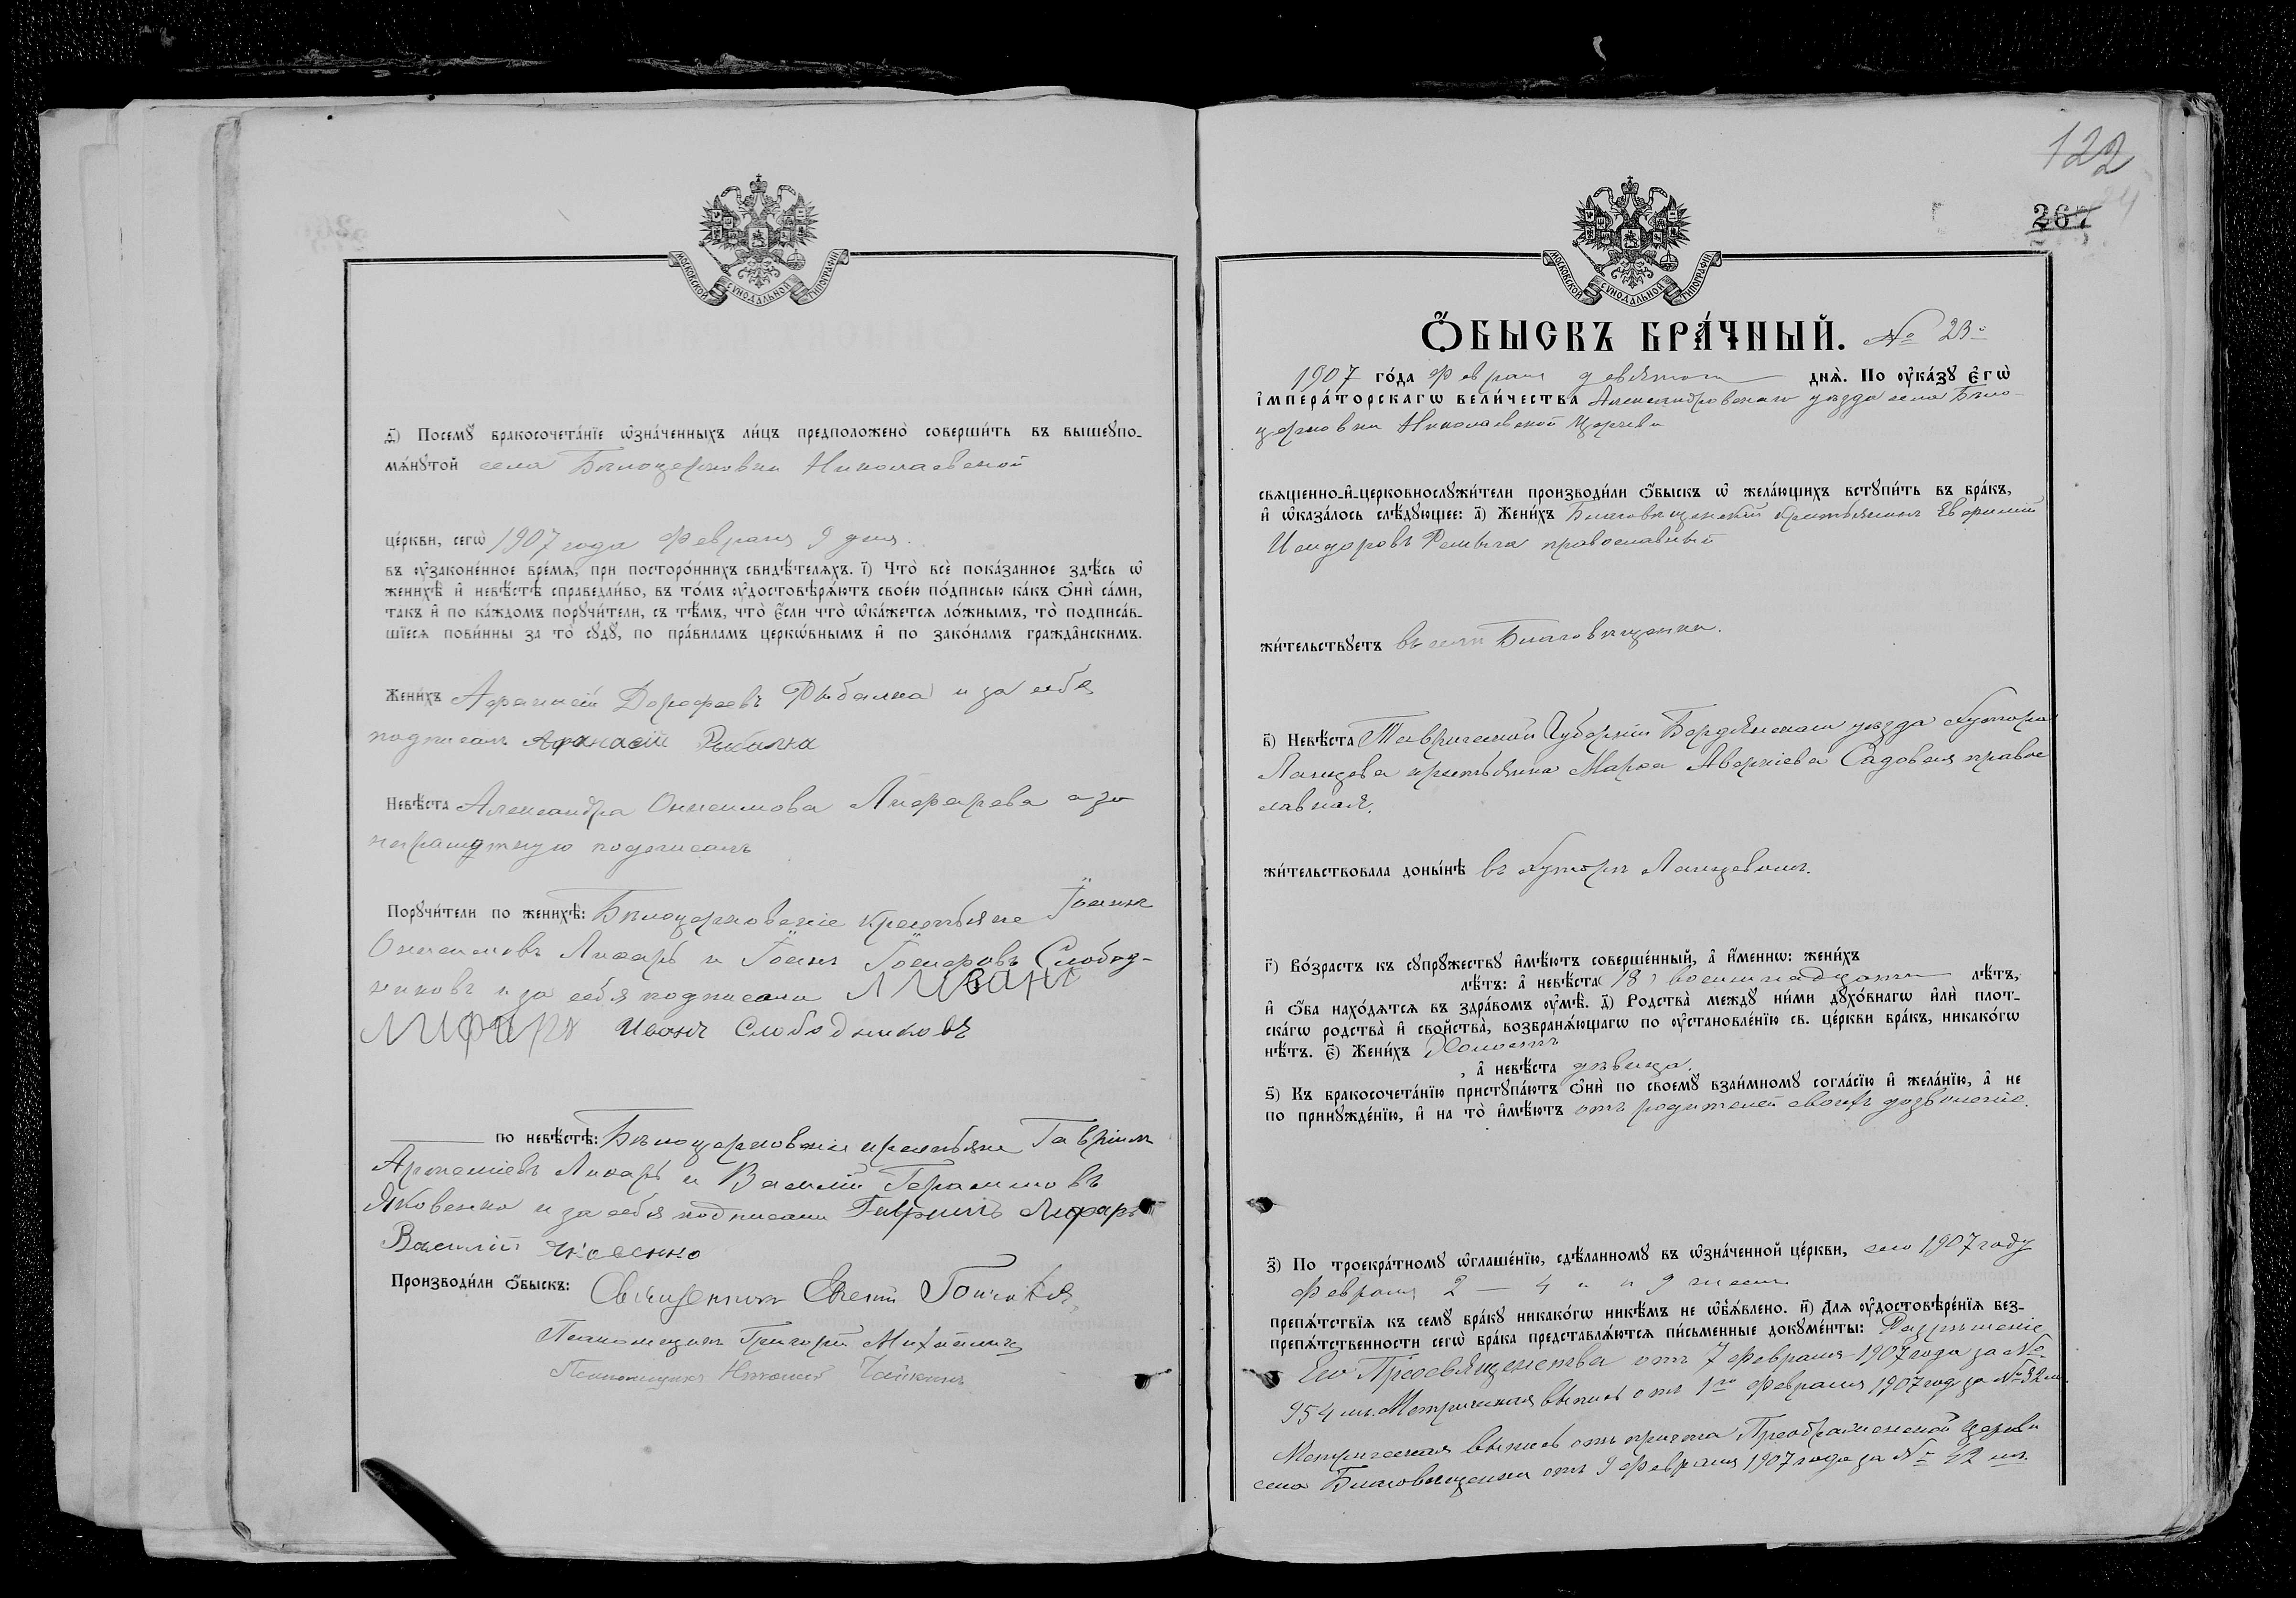 МОСКОВСКОЙ СѴНОДАЛЬНОЙ ТИПОГРАФІИ
д҃) Посемꙋ̀ бракосочета́нїе ѡ҆зна́ченныхъ ли́цъ предположено̀ соверши́ть въ вышеꙋпо-
мѧ́нꙋтой села Бѣлоцерковки Николаевской
це́ркви, сегѡ̀ 1907 года Февраля 9 дня.
въ ᲂу҆законе́нное вре́мѧ, при посторо́ннихъ свидѣ́телѧхъ. і҃) Что̀ всѐ пока́занное здѣ́сь ѡ҆
женихѣ̀ и҆ невѣ́стѣ справедли́во, въ то́мъ ᲂу҆достовѣрѧ́ютъ свое́ю по́дписью ка́къ ѻ҆нѝ са́ми,
та́къ и҆ по ка́ждомъ порꙋчи́тели, съ тѣ́мъ, что̀ є҆́сли что̀ ѡ҆ка́жетсѧ ло́жнымъ, то̀ подписа́в-
шїесѧ пови́нны за то̀ сꙋдꙋ̀, по пра́виламъ церкѡ́внымъ и҆ по зако́намъ гражда̑нскимъ.
Жени́хъ Афанасій Дорофеевъ Рыбалка и за себя
подписалъ Афанасій Рыбалка
Невѣ́ста Александра Онисимова Лифарева а за
неграмотную подписалъ
Порꙋчи́тели по женихѣ̀: Бѣлоцерковскіе крестьяне Іоаннъ
Онисимовъ Лифарь и Іоаннъ Слобод-
никовъ и за себя подписали ИВАНЪ
ЛИФАРЬ Иванъ Слободниковъ
по невѣ́стѣ: Бѣлоцерковскіе крестьяне Гавріилъ
Лифарь и Василій Герасимовъ
Яковенко и за себя подписали Гавріилъ Лифарь
Василій Яковенко
Производи́ли ѻ҆́быскъ: Священникъ
Псаломщикъ Григорій
Псаломщикъ
122
267
МОСКОВСКОЙ СѴНОДАЛЬНОЙ ТИПОГРАФІИ
Ѻ҆́БЫСКЪ БРА́ЧНЫЙ. № 23й
1907 го́да Февраля девятого днѧ̀. По ᲂу҆ка́зꙋ Є҆гѡ̀
І҆мпера́торскагѡ вели́чества Александровскаго уѣзда села Бѣло-
церковки Николаевской Церкви
свѧще́нно-и҆-церковнослꙋжи́тели производи́ли ѻ҆́быскъ ѡ҆ жела́ющихъ встꙋпи́ть въ бра́къ,
и҆ ѡ҆каза́лось слѣ́дꙋющее: а҃) Жени́хъ Благовѣщенскій крестьянинъ Евфимій
Исидоровъ православный
жи́тельствꙋетъ въ селѣ Благовѣщенка.
в҃) Невѣ́ста Таврической Губерніи Бердянскаго уѣзда Хутора
Ланцова крестьянка Марѳа Аверкіева Садовая правос
лавная.
жи́тельствовала доны́нѣ въ Хуторѣ Ланцевомъ.
г҃) Во́зрастъ къ сꙋпрꙋ́жествꙋ и҆мѣ́ютъ соверше́нный, а҆ и҆́менно: жени́хъ
лѣ́тъ: а҆ невѣ́ста (18) восемнадцати лѣ́тъ,
и҆ ѻ҆́ба нахо́дѧтсѧ въ здра́вомъ ᲂу҆мѣ̀. д҃) Родства̀ междꙋ̀ ни́ми дꙋхо́внагѡ и҆лѝ плот-
ска́гѡ родства̀ и҆ свойства̀, возбранѧ́ющагѡ по ᲂу҆становле́нїю св. це́ркви бра́къ, никако́гѡ
нѣ́тъ. є҃) Жени́хъ Холостъ
, а҆ невѣ́ста дѣвица.
ѕ҃) Къ бракосочета́нїю пристꙋпа́ютъ ѻ҆нѝ по своемꙋ̀ взаи́мномꙋ согла́сїю и҆ жела́нїю, а҆ не
по принꙋжде́нїю, и҆ на то̀ и҆мѣ́ютъ отъ родителей своихъ дозволеніе.
з҃) По троекра́тномꙋ ѡ҆глаше́нїю, сдѣ́ланномꙋ въ ѡ҆зна́ченной це́ркви, сего 1907 году
Февраля 2 — 4 " и 9 чиселъ
препѧ́тствїѧ къ семꙋ̀ бра́кꙋ никако́гѡ никѣ́мъ не ѡ҆б̾ѧ́влено. и҃) Длѧ ᲂу҆достовѣре́нїѧ без-
препѧ́тственности сегѡ̀ бра́ка представлѧ́ютсѧ пи́сьменные докꙋме́нты: Разрѣшеніе
Его Преосвященства отъ 7 Февраля 1907 года за №
954 мъ. Метрическая выпись отъ 1го Февраля 1907 года за № 32 мъ.
Метрическая выпись отъ причта Преображенской Церкви
села Благовѣщенки отъ 9 Февраля 1907 года за № 42 мъ.